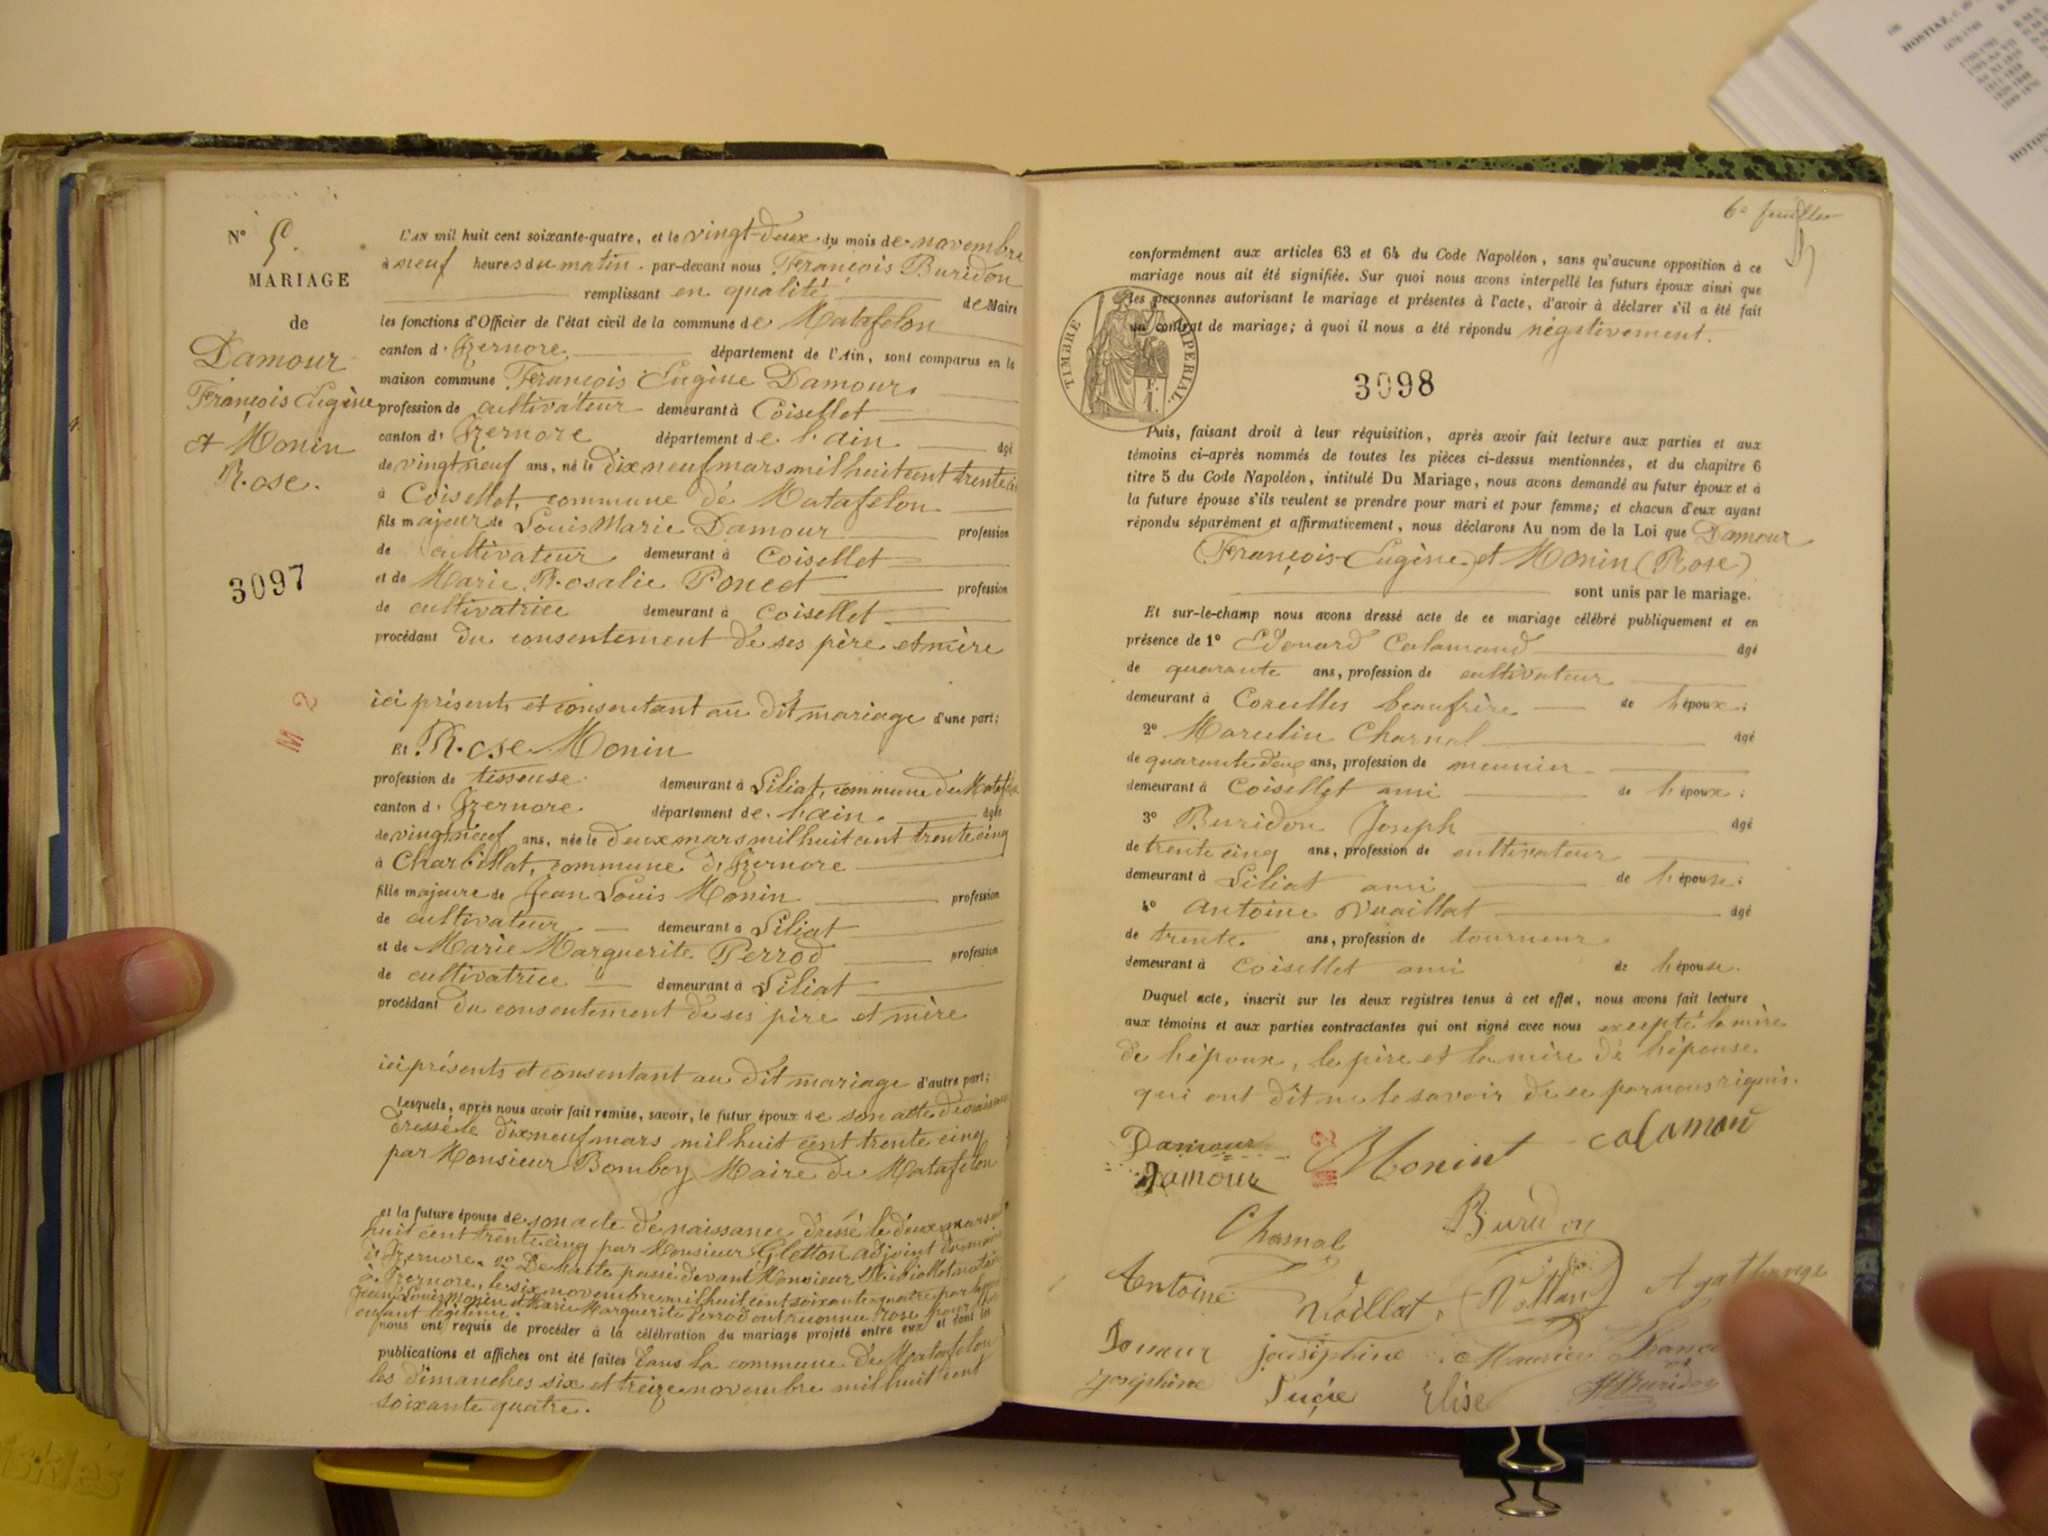 N° 5.
MARIAGE
de
Damour
François Eugène
et Monin
Rose.
3097
M 2
L'AN mil huit cent soixante-quatre, et le vingt-deux du mois de novembre
à neuf heures du matin. par-devant nous François Buridon
remplissant en qualité de Maire
les fonctions d'Officier de l'état civil de la commune de Matafelon
canton d'Izernore département de l'Ain, sont comparus en la
maison commune François Eugène Damour.
profession de cultivateur demeurant à Coisellet
canton d'Izernore département de l'ain. âgé
de vingt neuf ans, né le dix neuf mars mil huit cent trente
à Coisellet, commune de Matafelon
fils majeur de Louis Marie Damour profession
de cultivateur demeurant à Coisellet
et de Marie Rosalie Poncet profession
de cultivatrice demeurant à Coisellet
procédant du consentement de ses père et mère
ici présents et consentant au dit mariage d'une part;
Et Rose Monin
profession de tisseuse demeurant à Siliat, commune de
canton d'Izernore département de l'ain. âgée
de vingt neuf ans, née le deux mars mil huit cent trente cinq
à Charbillat, commune d'Izernore
fille majeure de Jean Louis Monin profession
de cultivateur demeurant à Siliat
et de Marie Marguerite Perrod profession
de cultivatrice demeurant à Siliat
procédant du consentement de ses père et mère
ici présents et consentant au dit mariage d'autre part;
Lesquels, après nous avoir fait remise, savoir, le futur époux de son acte de naissance
dressé le dix neuf mars mil huit cent trente cinq
par Monsieur Bomboy Maire de Matafelon
et la future épouse de son acte de naissance dressé le deux mars mil
huit cent trente cinq par Monsieur Gletton adjoint du maire
d'Izernore. 2° De l'acte passé devant Monsieur notaire
à Izernore, le six novembre mil huit cent soixante quatre par lequel
Jean Louis Monin et Marie Marguerite Perrod ont reconnu Rose pour leur
enfant légitime
nous ont requis de procéder à la célébration du mariage projeté entre eux et dont les
publications et affiches ont été faites dans la commune de Matafelon
les dimanches six et treize novembre mil huit cent
soixante quatre.
6e feuillet
conformément aux articles 63 et 64 du Code Napoléon, sans qu'aucune opposition à ce
mariage nous ait été signifiée. Sur quoi nous avons interpellé les futurs époux ainsi que
les personnes autorisant le mariage et présentes à l'acte, d'avoir à déclarer s'il a été fait
un contrat de mariage; à quoi il nous a été répondu négativement.
TIMBRE IMPERIAL
3098
Puis, faisant droit à leur réquisition, après avoir fait lecture aux parties et aux
témoins ci-après nommés de toutes les pièces ci-dessus mentionnées, et du chapitre 6
titre 5 du Code Napoléon, intitulé Du Mariage, nous avons demandé au futur époux et à
la future épouse s'ils veulent se prendre pour mari et pour femme; et chacun d'eux ayant
répondu séparément et affirmativement, nous déclarons Au nom de la Loi que Damour
(François-Eugène) et Monin (Rose)
sont unis par le mariage.
Et sur-le-champ nous avons dressé acte de ce mariage célébré publiquement et en
présence de 1° Edouard Calamand âgé
de quarante ans, profession de cultivateur
demeurant à Corcelles beaufrère de l'époux;
2° Marcelin Charnal âgé
de quarante deux ans, profession de meunier
demeurant à Coisellet ami de l'époux;
3° Buridon Joseph âgé
de trente cinq ans, profession de cultivateur
demeurant à Siliat ami de l'épouse;
4° Antoine Vuaillat âgé
de trente ans, profession de tourneur
demeurant à Coisellet ami de l'épouse.
Duquel acte, inscrit sur les deux registres tenus à cet effet, nous avons fait lecture
aux témoins et aux parties contractantes qui ont signé avec nous excepté la mère
de l'époux, le père et la mère de l'épouse
qui ont dit ne le savoir de ce par nous requis.
Damour Monint calaman
Damour
Charnal Buridon
Antoine Voillat Agathange
Damour joséphine
joséphine Lucie Elise
HOSTIAZ